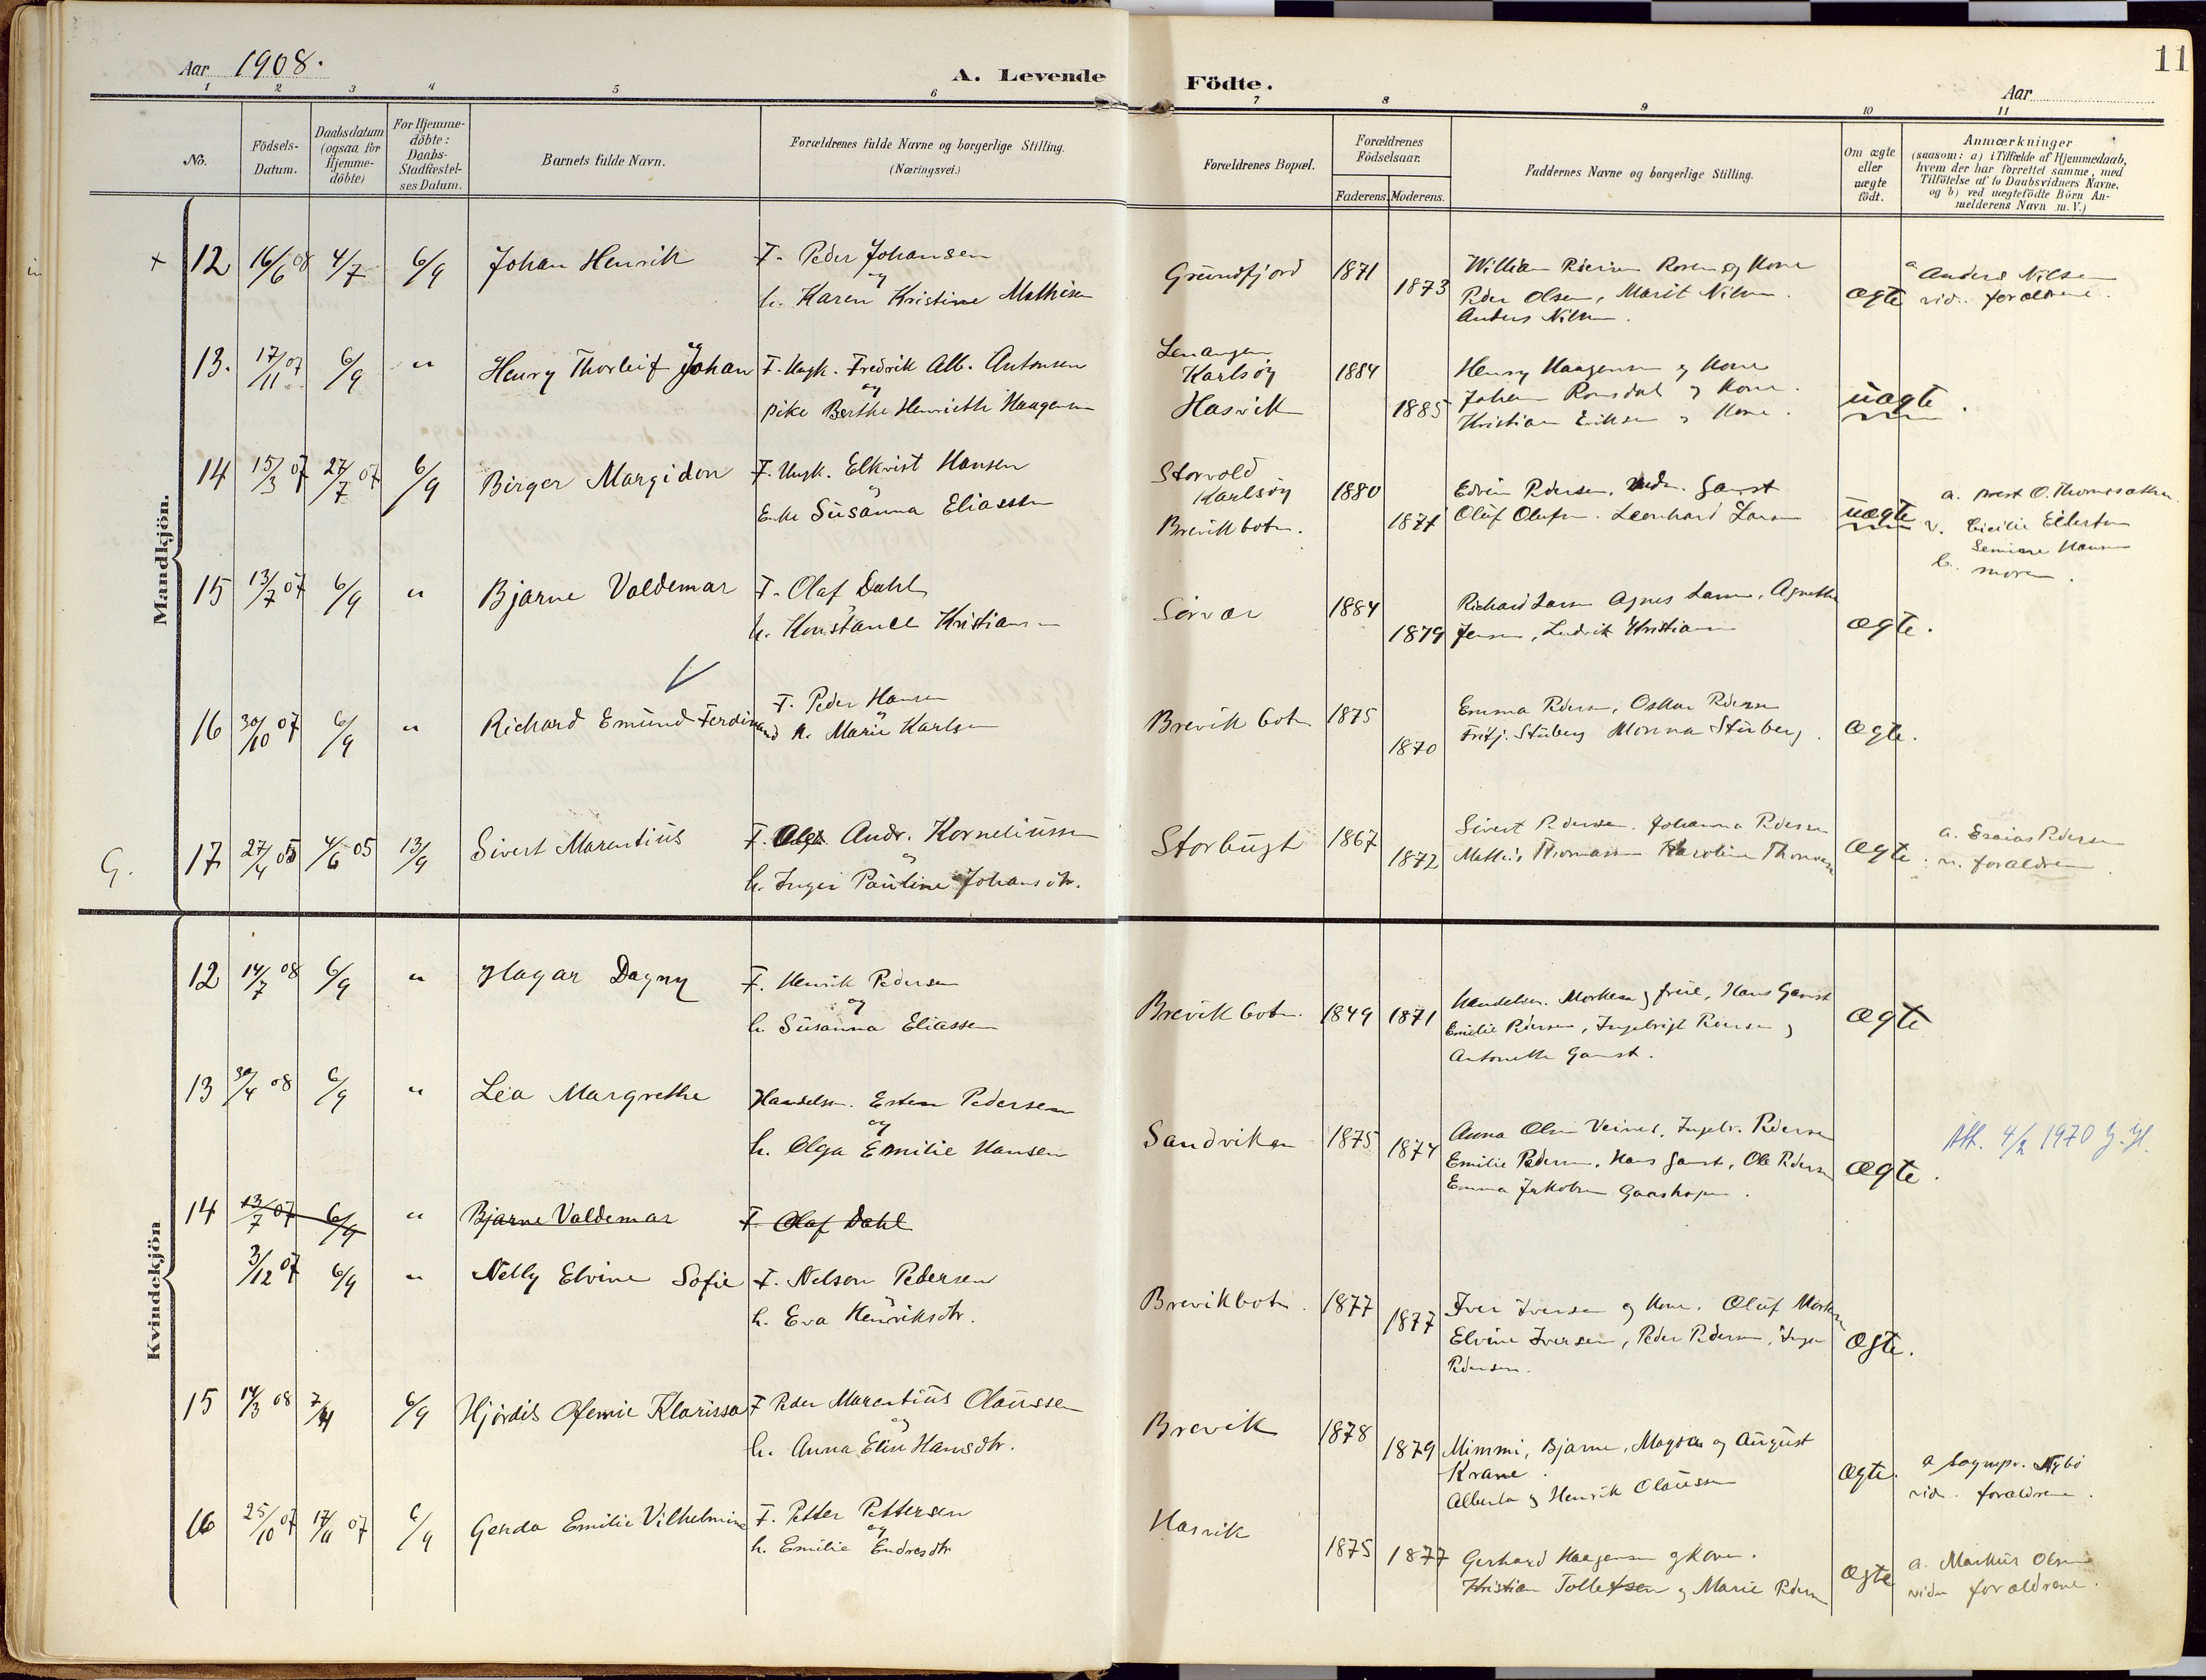 Aar 1908.
A. Levende Födte.
11
Aar
1 2 3 4 5 6 7 8 9 10 11
No.
Födsels-Datum.
Daabsdatum (ogsaa for Hjemme-döbte)
For Hjemme-döbte: Daabs-Stadfæstel-ses Datum.
Barnets fulde Navn.
Forældrenes fulde Navne og borgerlige Stilling. (Næringsvei.)
Forældrenes Bopæl.
Forældrenes Födselsaar.
Faderens. Moderens.
Faddernes Navne og borgerlige Stilling.
Om ægte eller uægte födt.
Anmærkninger
(saasom: a) i Tilfælde af Hjemmedaab,
hvem der har forrettet samme, med
Tilföielse af to Daabsvidners Navne.
og b) ved uægtefödte Börn An-
melderens Navn m.V.)
Mandkjön.
+ 12 16/6 08 4/7 6/9 Johan Henrik
F. Peder Johansen
og
h. Karen Kristine Mathisen
Grundfjord 1871 1873
William Rosen og Kone
Peder Olsen, Marit Nilsen.
Anders Nilsen.
ægte
a Anders Nilsen
vid. forældrene.
13. 17/11 07 6/9 " Henry Thorleif Johan
F. Ungk. Fredrik Alb. Antonsen
og
pike Berthe Henriette Haagensen
Lenangen
Karlsöy
Hasvik
1884 1885
Henry Haagensen og Kone
Johan Romsdal og Kone.
Kristian Eriksen og Kone.
uægte.
14 15/3 07 27/7 07 6/9 Birger Margidon
F. Ungk. Elkvist Hansen
og
Enke Susanna Eliassen
Storvold
Karlsöy
Brevikbotn.
1880 1871
Edvin Pedersen, Gamst
Oluf Olufsen. Leonhard Larsen
uægte
a. prest O. Thomassen
v. Cicilie Eilertsen
Hansen
b. moren.
15 13/7 07 6/9 " Bjarne Valdemar
F. Olaf Dahl
h. Konstance Kristiansen
Sörvær 1884 1879
Richard Larsen Agnes Larsen, Agnethe
Jensen, Ludvik Kristiansen
ægte.
16 30/10 07 6/9 " Richard Emund Ferdinand
F. Peder Hansen
og
h. Marie Karlsen
Brevikbotn 1875 1870
Emma Pedersen, Oskar Pedersen
Fritj. Stüberg Monna Stüberg.
ægte.
G. 17 27/4 05 4/6 05 13/9 Sivert Marentius
F. Andr. Korneliussen
og
h. Inger Pauline Johansdtr.
Storbugt 1867 1872
Sivert Pedersen. Johanna Pedersen
Mathis Thomassen Karoline Thomassen
ægte.
a. Esaias Pedersen
v. forældrene.
Kvindekjön
12 14/7 08 6/9 " Hagar Dagny
F. Henrik Pedersen
og
h. Susanna Eliassen
Brevikbotn. 1849 1871
Handelsm. Morken og frue, Hans Gamst
Emilie Pedersen, Ingebrigt Pedersen og
Antonette Gamst.
ægte
13 30/4 08 6/9 " Lea Margrethe
Handelsm. Esten Pedersen
og
h. Olga Emilie Hansen
Sandviken 1875 1874
Anna Olsen Veines, Ingebr. Pedersen
Emilie Pedersen, Hans Gamst, Ole Pedersen
Emma Jakobsen Gaashopen.
ægte.
Att. 4/2 1970
14 13/7 07 6/9 " Bjarne Valdemar F. Olaf Dahl
3/12 07 6/9 " Nelly Elvine Sofie
F. Nelson Pedersen
og
h. Eva Henriksdtr.
Brevikbotn. 1877 1877
Iver Iversen og Kone. Oluf Morken
Elvine Iversen, Peder Pedersen, Inger
Pedersen.
ægte.
15 14/3 08 7/4 6/9 Hjördis Ofemie Klarissa
F Peder Marentius Olaussen
og
h. Anna Elise Hansdtr.
Brevik 1878 1879
Mimmi, Bjarne, Magda og August
Krane.
Alberta og Henrik Olaussen
ægte.
a Sognepr. Nybö
vidn. forældrene.
16 25/10 07 17/11 07 6/9 Gerda Emilie Vilhelmine
F. Petter Pettersen
og
h. Emilie Endresdtr
Hasvik 1875 1877
Gerhard Haagensen og Kone.
Kristian Tollefsen og Marie Pedersen
ægte
a. Markus Olsen
vidn forældrene.